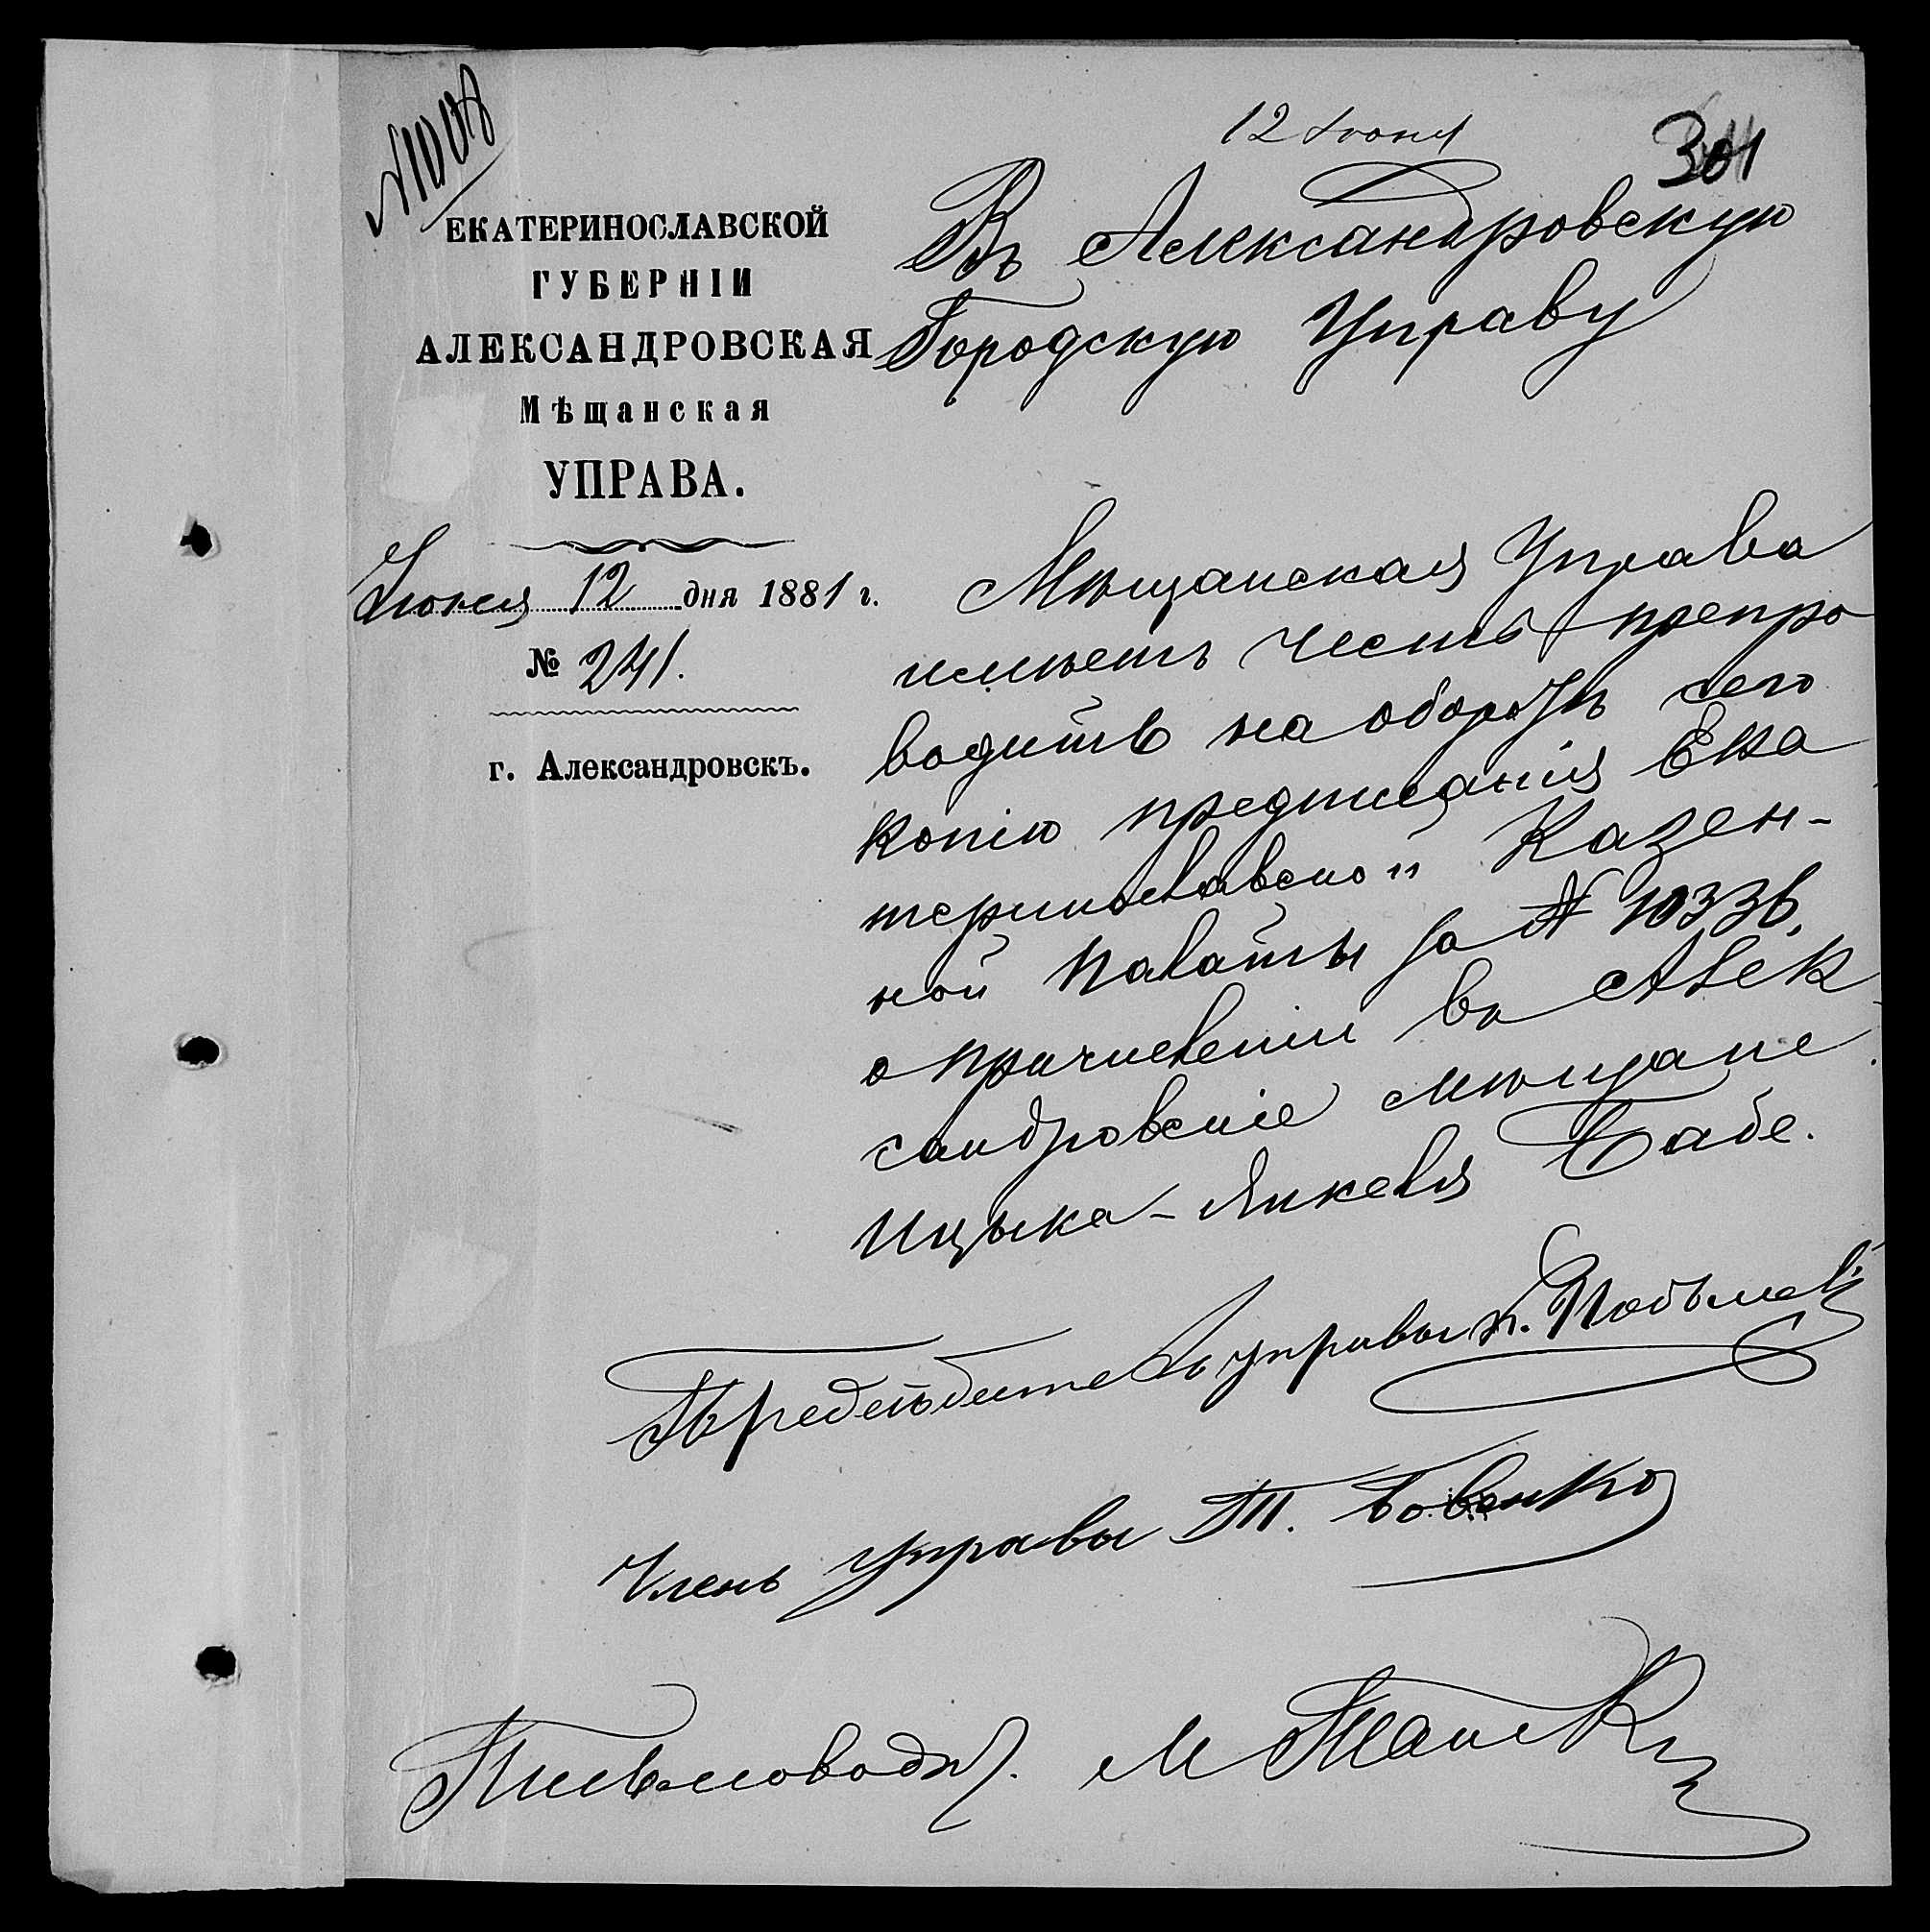 №1008
12 Іюня
301
ЕКАТЕРИНОСЛАВСКОЙ
ГУБЕРНІИ
АЛЕКСАНДРОВСКАЯ
Мѣщанская
УПРАВА.
Іюня 12 дня 1881 г.
№ 241.
г. Александровскъ.
Въ Александровскую
Городскую Управу
Мѣщанская Управа
имѣетъ честь препро
водить на оборотѣ сего
копію предписанія Ека
теринославской Казен-
ной Палаты за № 10336,
о причисленіи въ Алек
сандровскіе мѣщане
Ицька-Янкеля Бабе.
Предсѣдатель управы
Членъ управы Т. Бовенко
Письмоводи. М